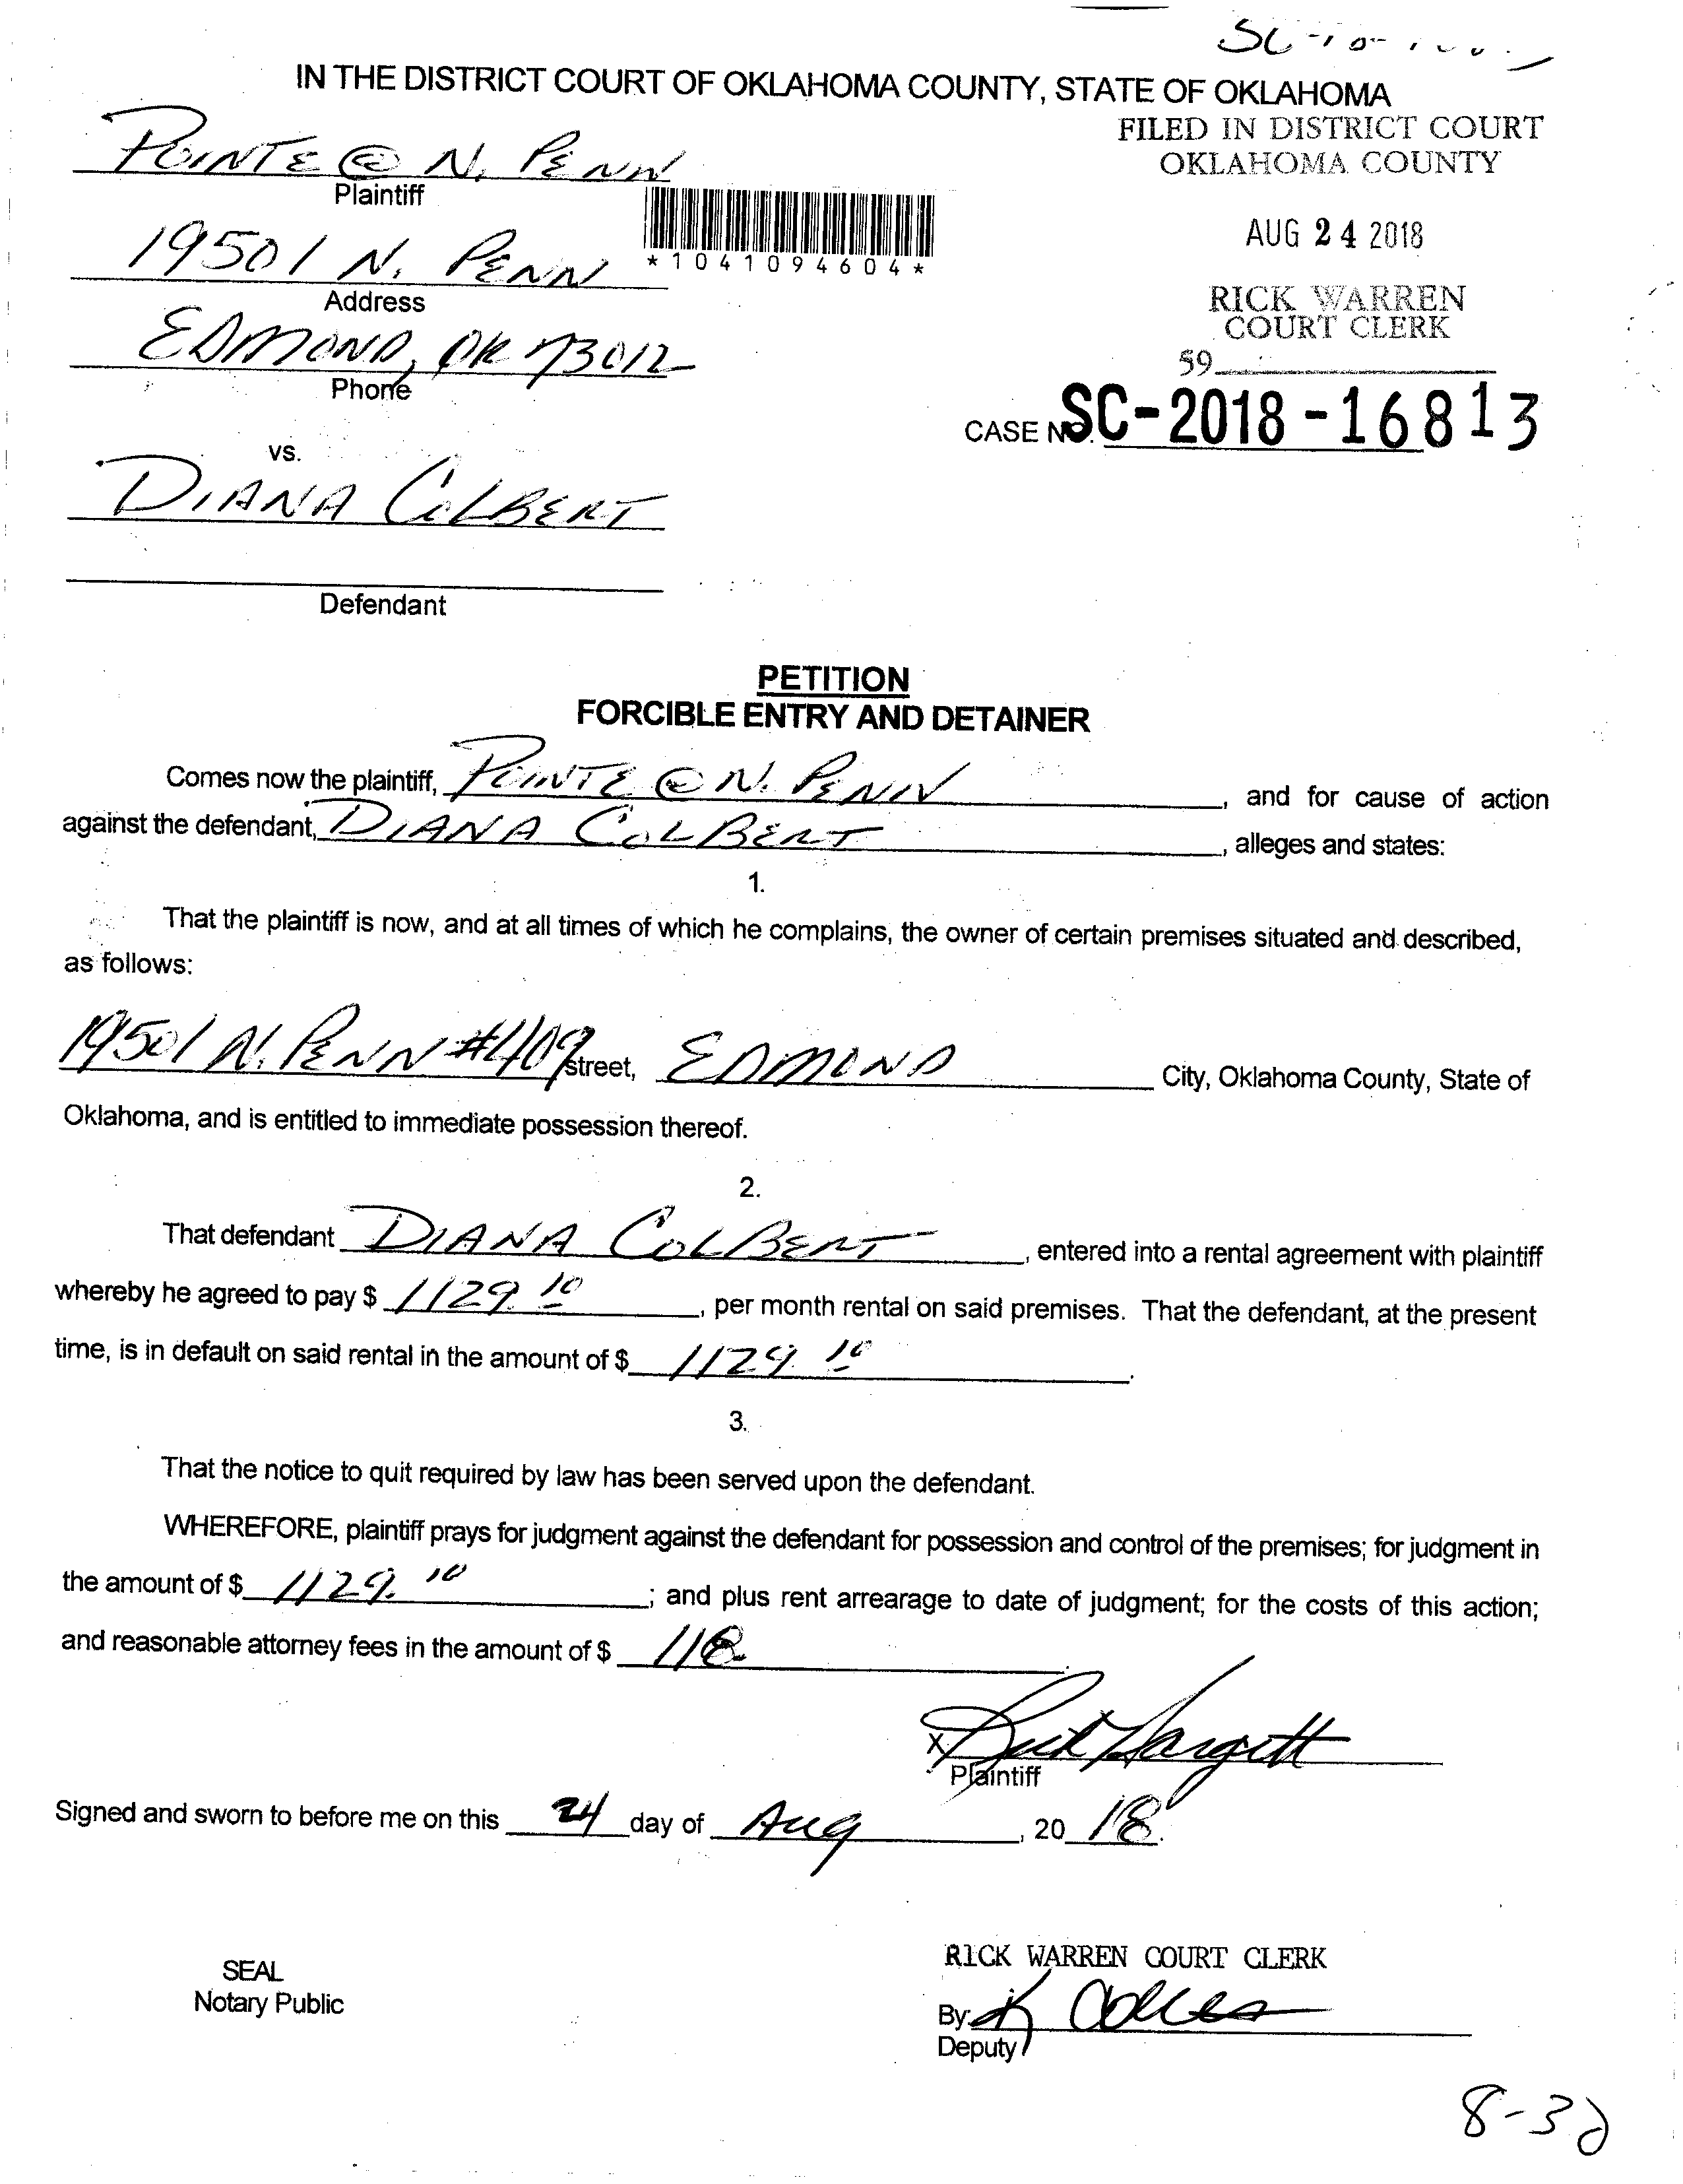 IN THE DISTRICT COURT OF OKLAHOMA COUNTY, STATE OF OKLAHOMA
FILED IN DISTRICT COURT
OKLAHOMA COUNTY
POINTE @ N. PENN
Plaintiff
AUG 24 2018
19501 N. PENN
*1041094604*
Address
RICK WARREN
COURT CLERK
EDMOND, OK 73012
59
Phone
CASE NO. SC-2018-16813
vs.
DIANA COLBERT
Defendant
PETITION
FORCIBLE ENTRY AND DETAINER
Comes now the plaintiff, POINTE @ N. PENN, and for cause of action
against the defendant, DIANA COLBERT, alleges and states:
1.
That the plaintiff is now, and at all times of which he complains, the owner of certain premises situated and described,
as follows:
19501 N. PENN #409 street, EDMOND City, Oklahoma County, State of
Oklahoma, and is entitled to immediate possession thereof.
2.
That defendant DIANA COLBERT, entered into a rental agreement with plaintiff
whereby he agreed to pay $ 1129.10, per month rental on said premises. That the defendant, at the present
time, is in default on said rental in the amount of $ 1129.10.
3.
That the notice to quit required by law has been served upon the defendant.
WHEREFORE, plaintiff prays for judgment against the defendant for possession and control of the premises; for judgment in
the amount of $ 1129.10; and plus rent arrearage to date of judgment; for the costs of this action;
and reasonable attorney fees in the amount of $ 118.
X Hargett
Plaintiff
Signed and sworn to before me on this 24 day of Aug, 20 18.
SEAL
Notary Public
RICK WARREN COURT CLERK
By K
Deputy